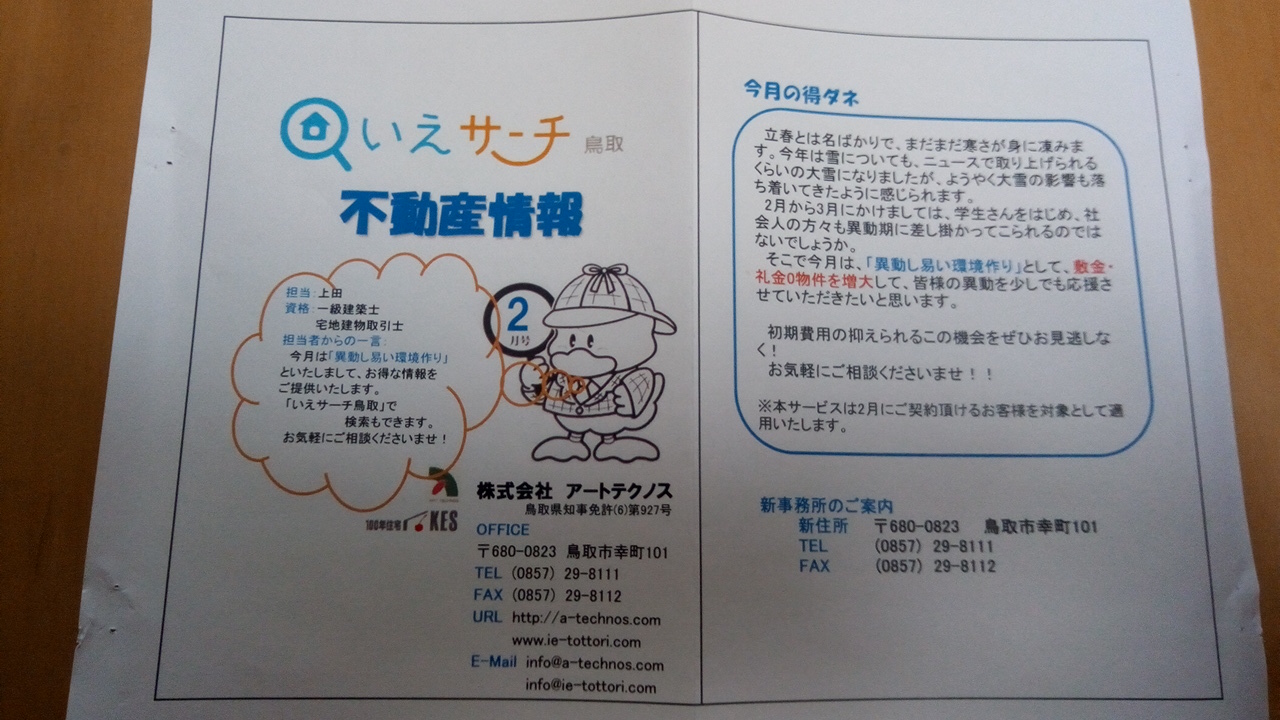 いえサーチ 鳥取
不動産情報
担当：上田
資格：一級建築士
宅地建物取引士
担当者からの一言：
今月は「異動し易い環境作り」
といたしまして、お得な情報を
ご提供いたします。
「いえサーチ鳥取」で
検索もできます。
お気軽にご相談くださいませ！
2
月号
100年住宅 KES
株式会社 アートテクノス
鳥取県知事免許(6)第927号
OFFICE
〒680-0823 鳥取市幸町101
TEL (0857) 29-8111
FAX (0857) 29-8112
URL http://a-technos.com
www.ie-tottori.com
E-Mail info@a-technos.com
info@ie-tottori.com
今月の得ダネ
立春とは名ばかりで、まだまだ寒さが身に凍みま
す。今年は雪についても、ニュースで取り上げられる
くらいの大雪になりましたが、ようやく大雪の影響も落
ち着いてきたように感じられます。
2月から3月にかけましては、学生さんをはじめ、社
会人の方々も異動期に差し掛かってこられるのでは
ないでしょうか。
そこで今月は、「異動し易い環境作り」として、敷金・
礼金0物件を増大して、皆様の異動を少しでも応援さ
せていただきたいと思います。
初期費用の抑えられるこの機会をぜひお見逃しな
く！
お気軽にご相談くださいませ！！
※本サービスは2月にご契約頂けるお客様を対象として適
用いたします。
新事務所のご案内
新住所 〒680-0823 鳥取市幸町101
TEL (0857) 29-8111
FAX (0857) 29-8112